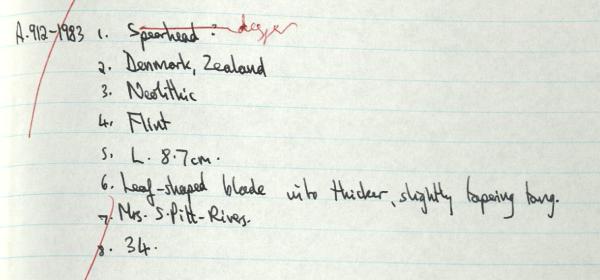 A.912-1983 1. Spearhead? dagger
2. Denmark, Zealand
3. Neolithic
4. Flint
5. L. 8.7cm.
6. Leaf-shaped blade into thicker, slightly tapering tang.
7. Mrs. S. Pitt-Rivers.
8. 34.